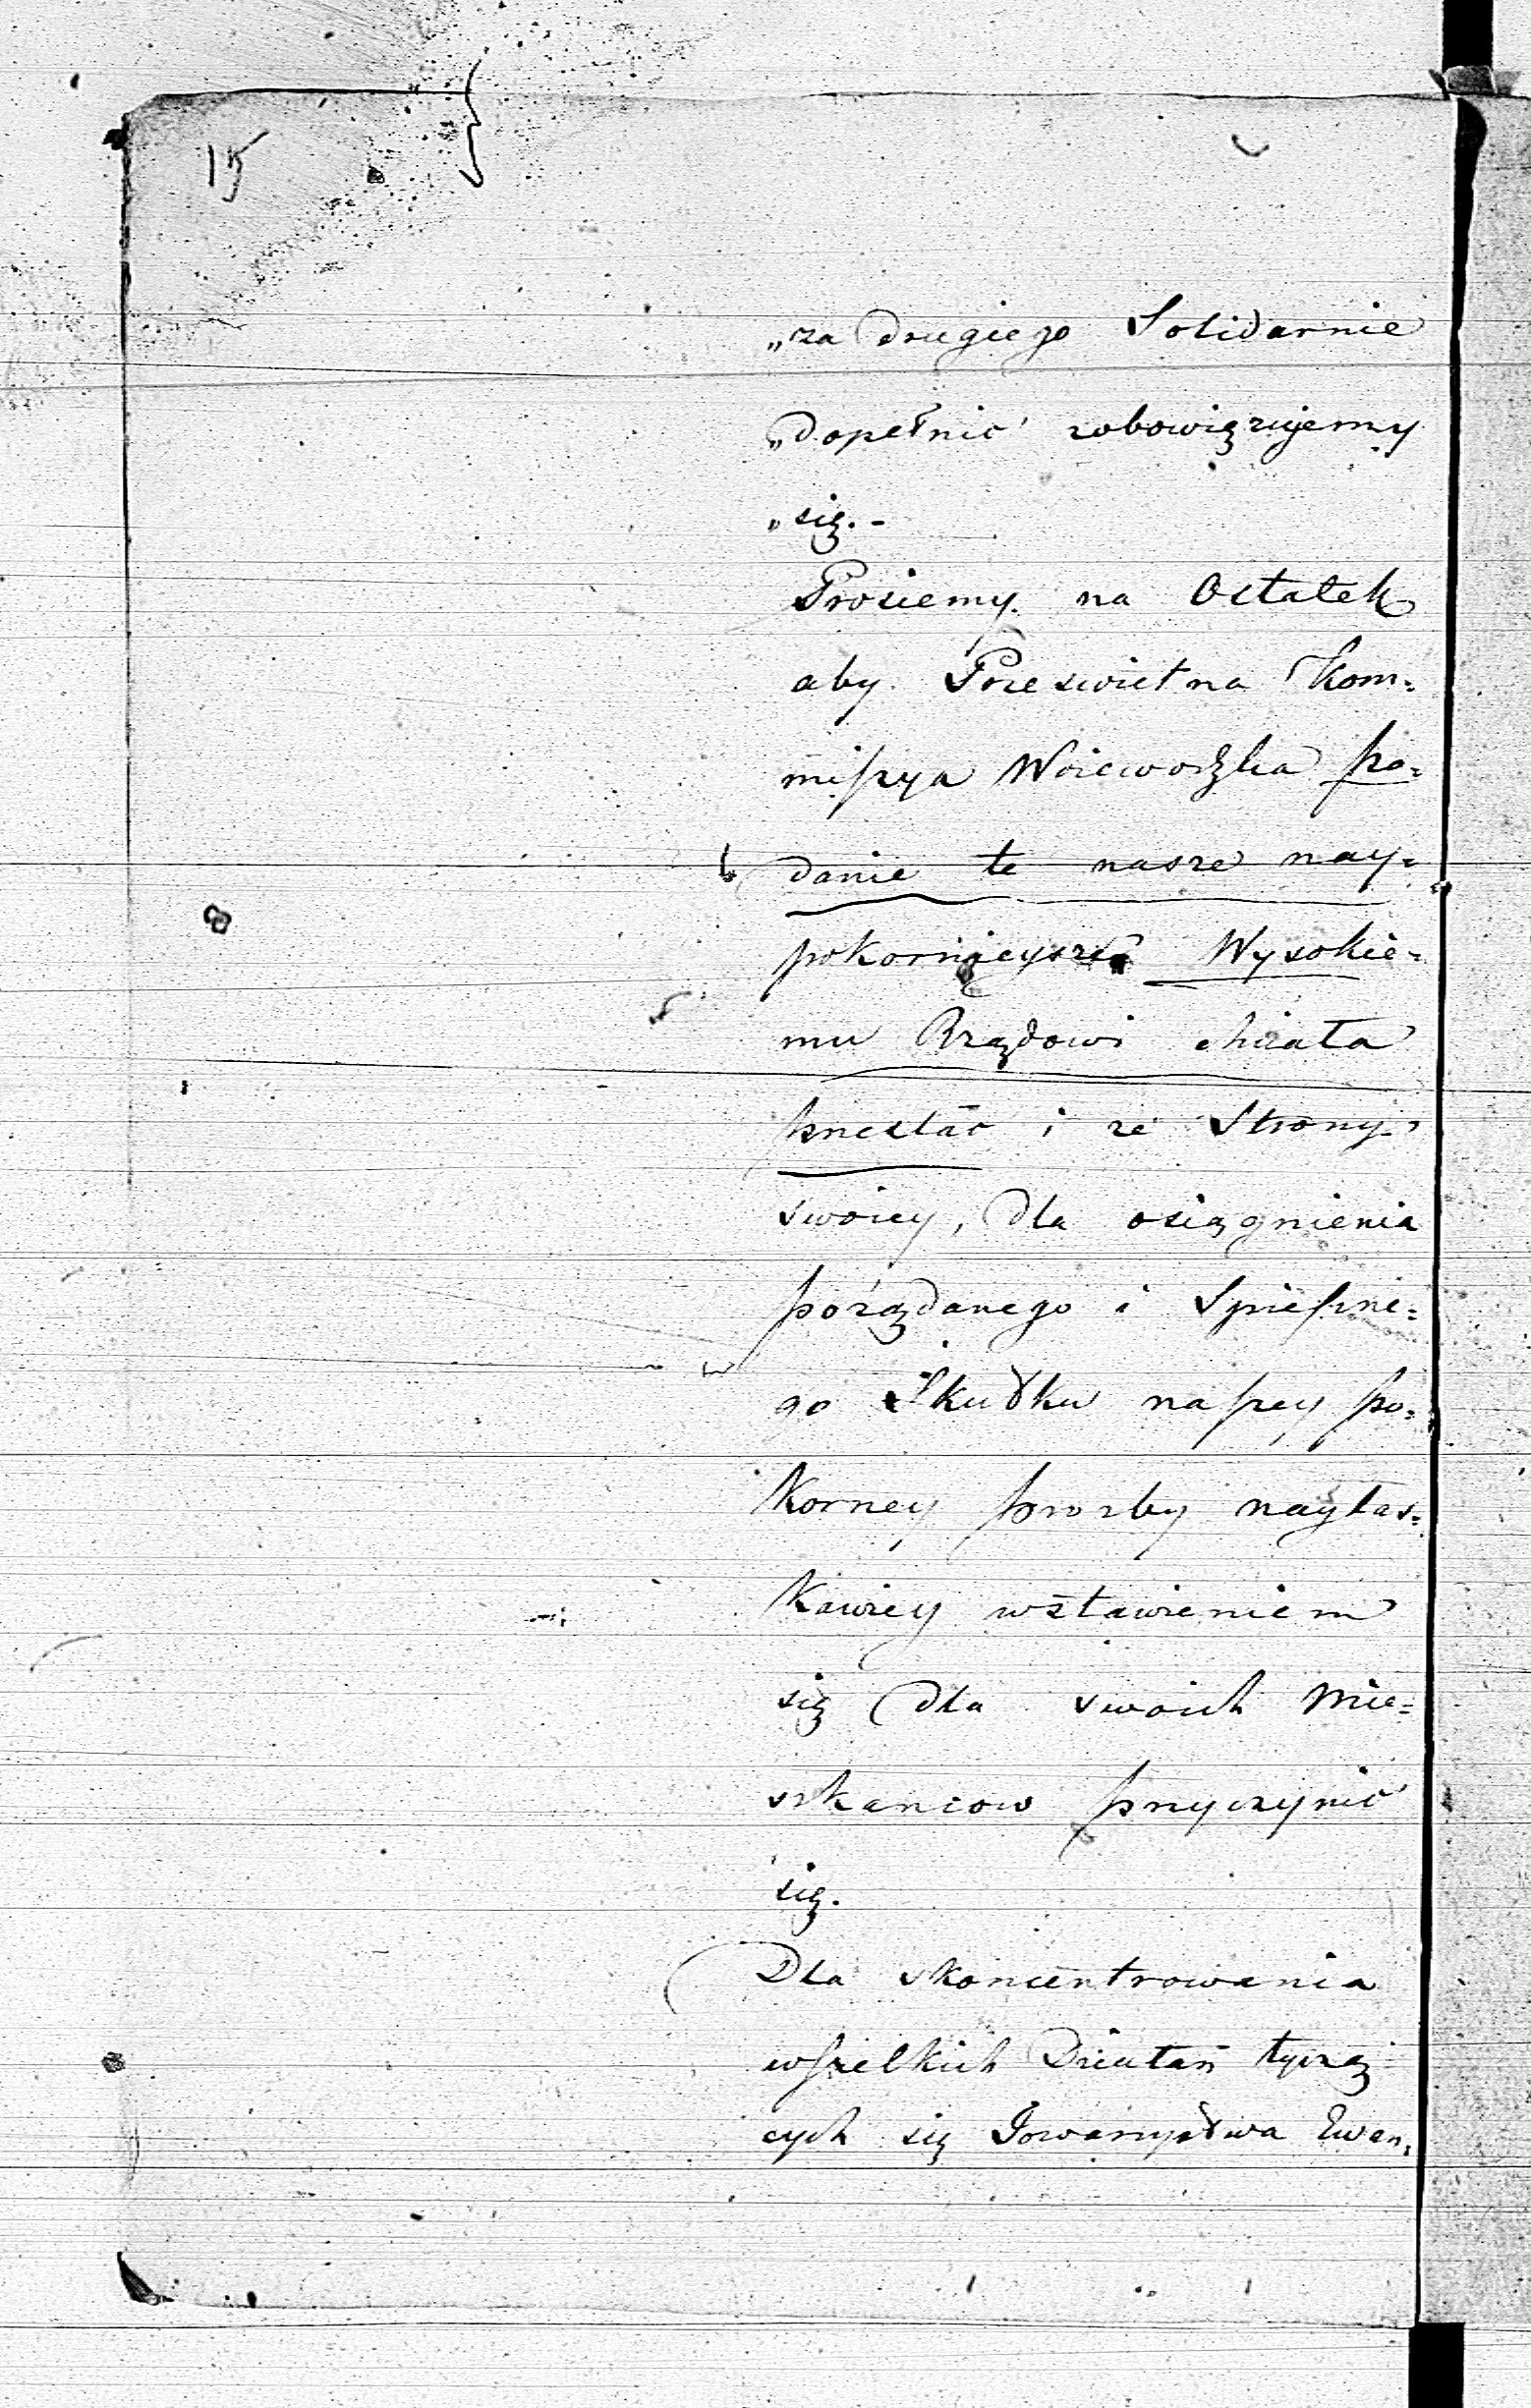 15
„za drugiego Solidarnie
„dopełnić zobowięzujemy
„się. -
Prosiemy na Ostatek
aby Prześwietna Kom=
missya Woiewodzka po=
danie te nasze nay=
pokornieysze Wysokie=
mu Rządowi chciała
przesłać i ze Strony
swoiey, dla osiągnienia
pożądanego i Spieszne=
go Skutku naszey po=
korney prozby nayłas=
kawiey wstawieniem
się dla swoich Mie=
szkancow przyczynić
się.
Dla skoncentrowania
wszelkich Działań tyczą
cych się Towarzystwa Ewan=